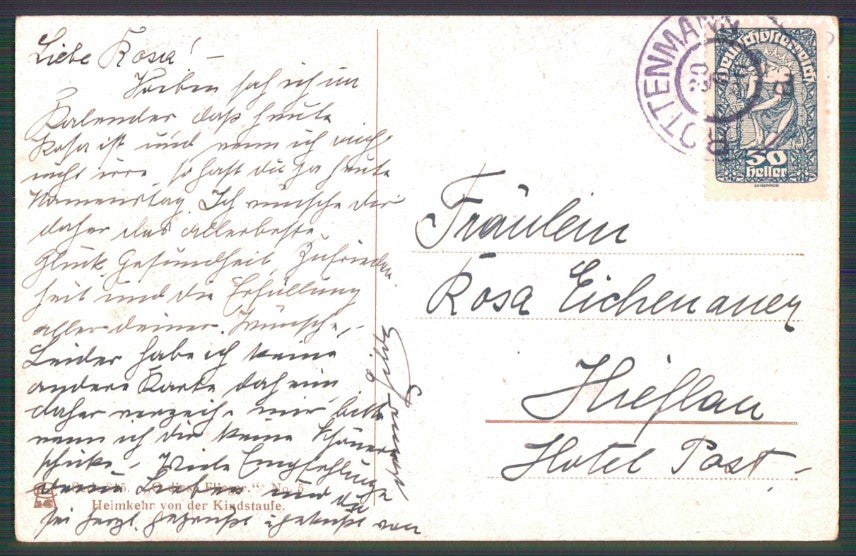 Liebe Rosa! –
Soeben sah ich im
Kalender daß heute
Rosa ist und wenn ich mich
nicht irre so hast du ja heute
Namenstag. Ich wünsche dir
daher das allerbeste
Glück Gesundheit, Zufrieden
heit und die Erfüllung
aller deiner Wünsche, –
Leider habe ich keine
andere Karte daheim
daher verzeih mir bitte
wenn ich dir keine schönere
schicke – Viele Empfehlunge
Lieben und du
sei herzl. gegrüßt u geküßt von
Heimkehr von der Kindstaufe.
ROTTENMANN
Deutschösterreich
30
Heller
Fräulein
Rosa Eichenauer
Hieflau
Hotel Post. –